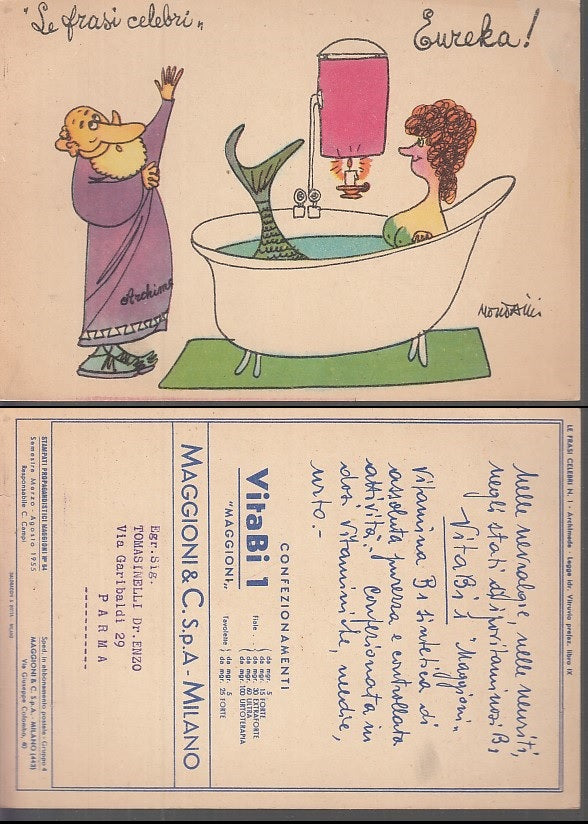 "Le frasi celebri"
Eureka!
Archim
MONDAINI
LE FRASI CELEBRI N. 1 - Archimede - Legge idr. Vitruvio prefaz. libro IX
Nelle nevralgie, nelle neuriti,
negli stati d'ipovitaminosi B1
VitaBi 1 "Maggioni"
Vitamina B1 sintetica di
assoluta purezza e controllata
attività. Confezionata in
dosi vitaminiche, medie,
urto.-
CONFEZIONAMENTI
VitaBi 1
"MAGGIONI"
fiale: da mgr. 5
da mgr. 15 FORTE
da mgr. 30 EXTRAFORTE
da mgr. 60 ULTRA
da mgr. 100 URTOTERAPIA
tavolette: da mgr. 5
da mgr. 25 FORTE
MAGGIONI & C. S.p.A - MILANO
Egr.Sig.
TOMASINELLI Dr.ENZO
Via Garibaldi 29
P A R M A
STAMPATI PROPAGANDISTICI MAGGIONI N° 84
Semestre Marzo - Agosto 1955
Responsabile C. Campi
Sped. in abbonamento postale - Gruppo 4
MAGGIONI & C. S.p.A. - MILANO (443)
Via Giuseppe Colombo, 40